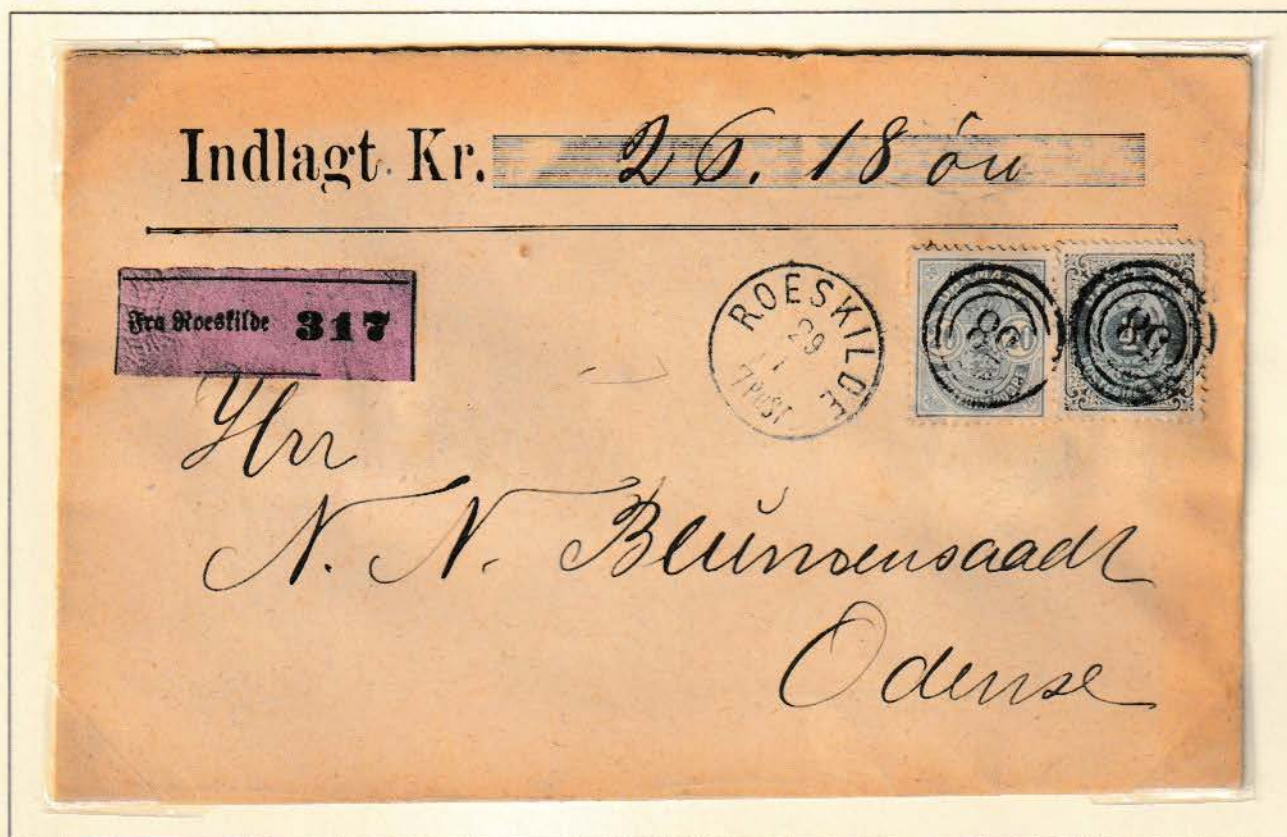 Indlagt Kr. 26. 18 öre
Fra Roeskilde 317
ROESKILDE
29
1
7 POST
Hrr
N. N. Blumensaadt
Odense